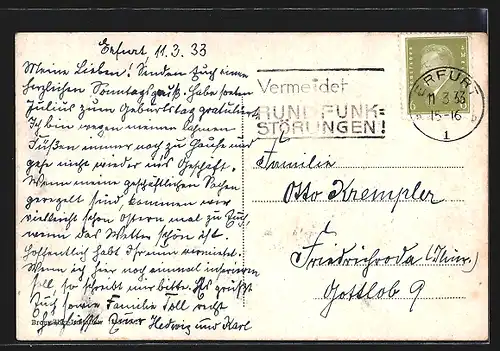 Erfurt 11.3.33
Meine Lieben! Senden Euch einen
herzlichen Sonntagsgruß. Habe soeben
Julius zum Geburtstag gratuliert.
Ich bin wegen meinen lahmen
Füßen immer noch zu Hause und
gehe nicht wieder ins Geschäft.
Wenn meine geschäftlichen Sachen
geregelt sind, kommen wir
vielleicht schon Ostern mal zu Euch,
wenn das Wetter schön ist.
Hoffentlich habt Ihr vermietet.
Wenn ich hier noch einmal inserieren
soll, so schreibt nur bitte. Es grüßt
Euch sowie Familie Toll recht
herzlichst Eure Hedwig und Karl
Vermeidet
RUNDFUNK=
STÖRUNGEN!
ERFURT
11.3.33
15-16
1
6 6
Familie
Otto Krempler
Friedrichroda (Thür.
Gottlob 9